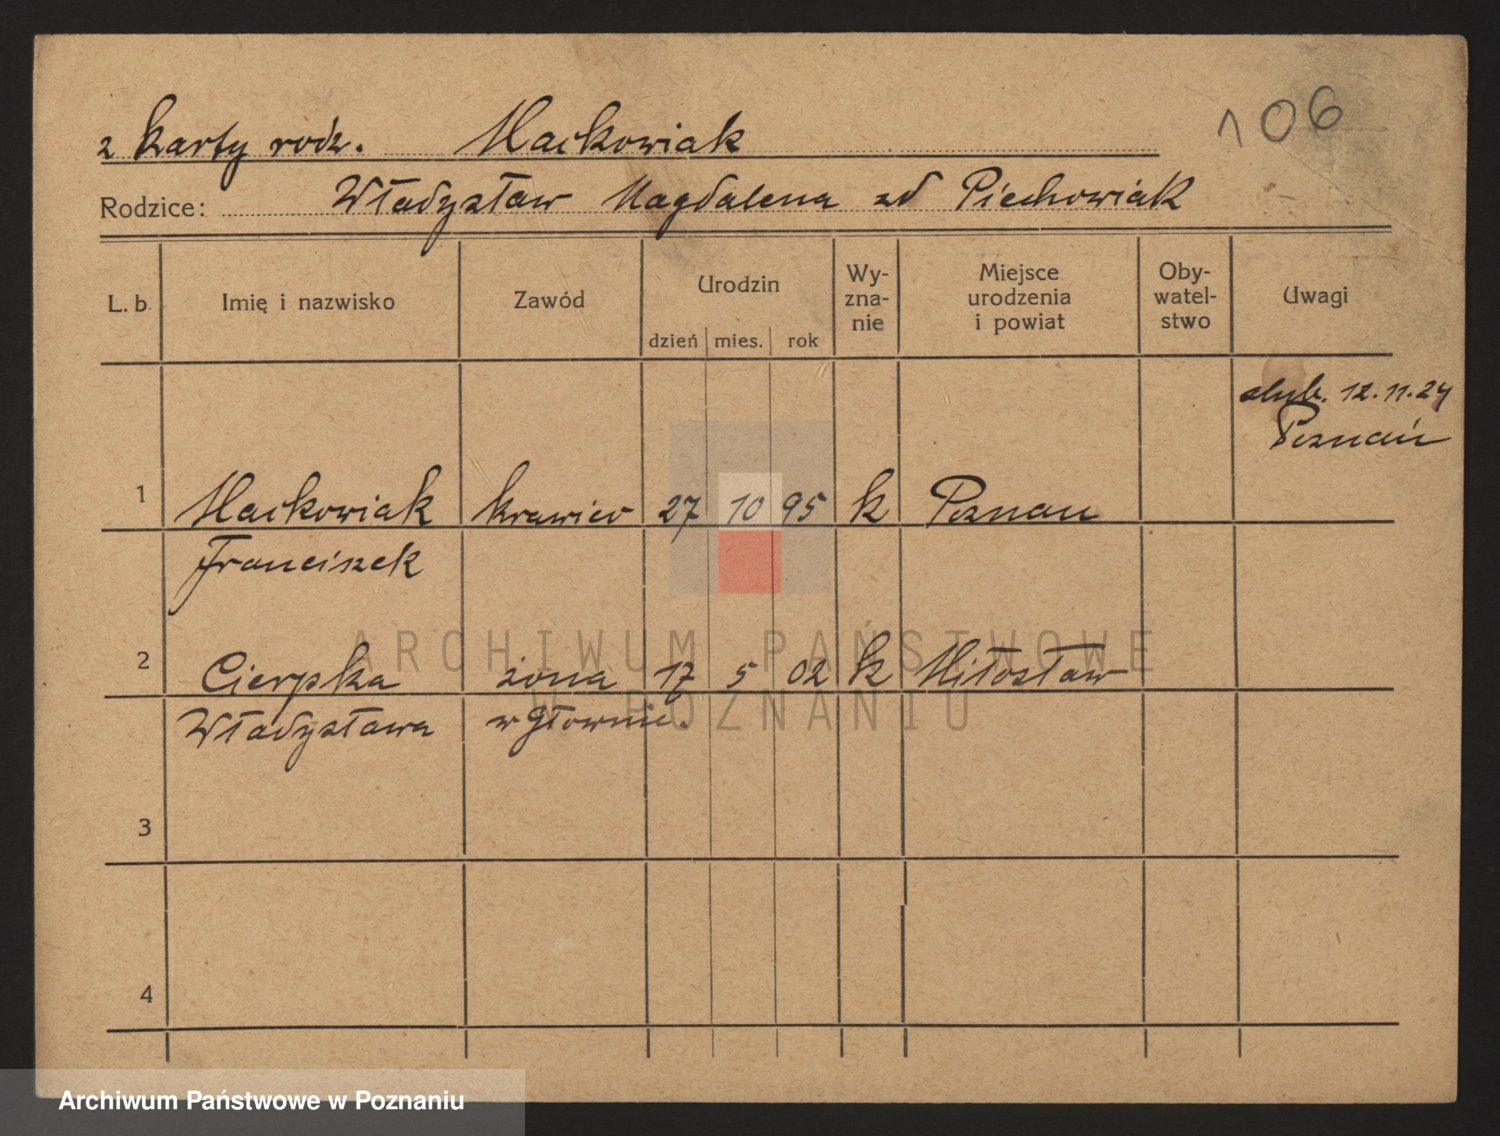 106
z karty rodz. Maćkowiak
Rodzice: Władysław Magdalena zd Piechowiak
L. b. Imię i nazwisko Zawód Urodzin dzień mies. rok Wy-zna-nie Miejsce urodzenia i powiat Oby-watel-stwo Uwagi
ślub. 12.11.24
Poznań
1 Maćkowiak krawiec 27 10 95 k Poznań
Franciszek
2 Cierpka żona 17 5 02 k Miłosław
Władysława w Głównie.
3
4
ARCHIWUM PAŃSTWOWE
W POZNANIU
Archiwum Państwowe w Poznaniu